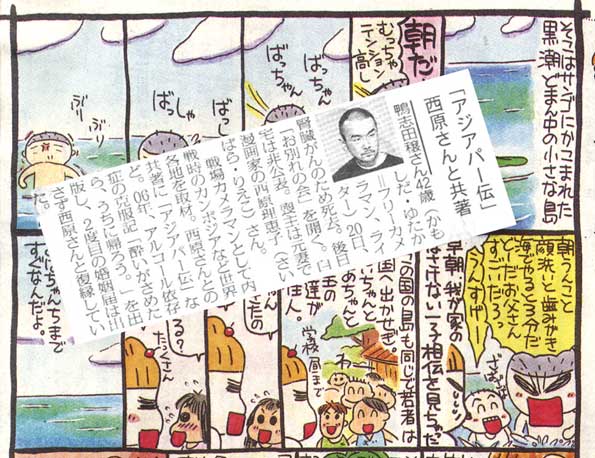 そこはサンゴにかこまれた
黒潮どまん中の小さな島
朝だ
むっちゃ
テンション
高し
ばっちゃん
ばっちゃん
ばっし
ばっしゃ
ぶり
ぶりっ
「アジアパー伝」
西原さんと共著
鴨志田穣さん42歳（かも
しだ・ゆたか
＝フリーカメ
ラマン、ライ
ター）20日、
腎臓がんのため死去。後日
「お別れの会」を開く。自
宅は非公表。喪主は元妻で
漫画家の西原理恵子（さい
ばら・りえこ）さん。
戦場カメラマンとして内
戦時のカンボジアなど世界
各地を取材。西原さんとの
共著に「アジアパー伝」な
ど。06年、アルコール依存
症の克服記「酔いがさめた
ら、うちに帰ろう。」を出
版し、2度目の婚姻届は出
さず西原さんと復縁してい
た。
朝うんこと
顔洗いと歯みがき
海でやると3分だ
どーだお父さん
すごいだろっ
さんすげー
ざぶ
早朝、我が家の
一子相伝を見ちゃだ
の国の島も同じで若者は
国へ出かせぎ。
いちゃんと
あちゃんと
達が
住人。
学校前まで
わー
きたの
る？
たっくさん
じいちゃんちまで
すぐなんだよ。